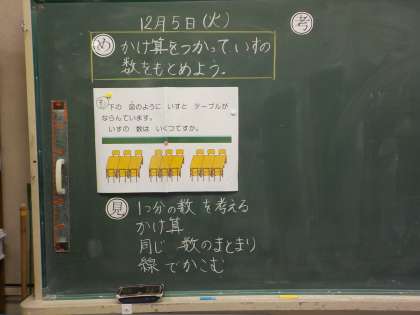 12月5日(火)
め かけ算をつかって いすの
数をもとめよう。
考
下の 図のように いすと テーブルが
ならんでいます。
いすの 数は いくつですか。
見 1つ分の数 を考える
かけ算
同じ 数のまとまり
線 でかこむ